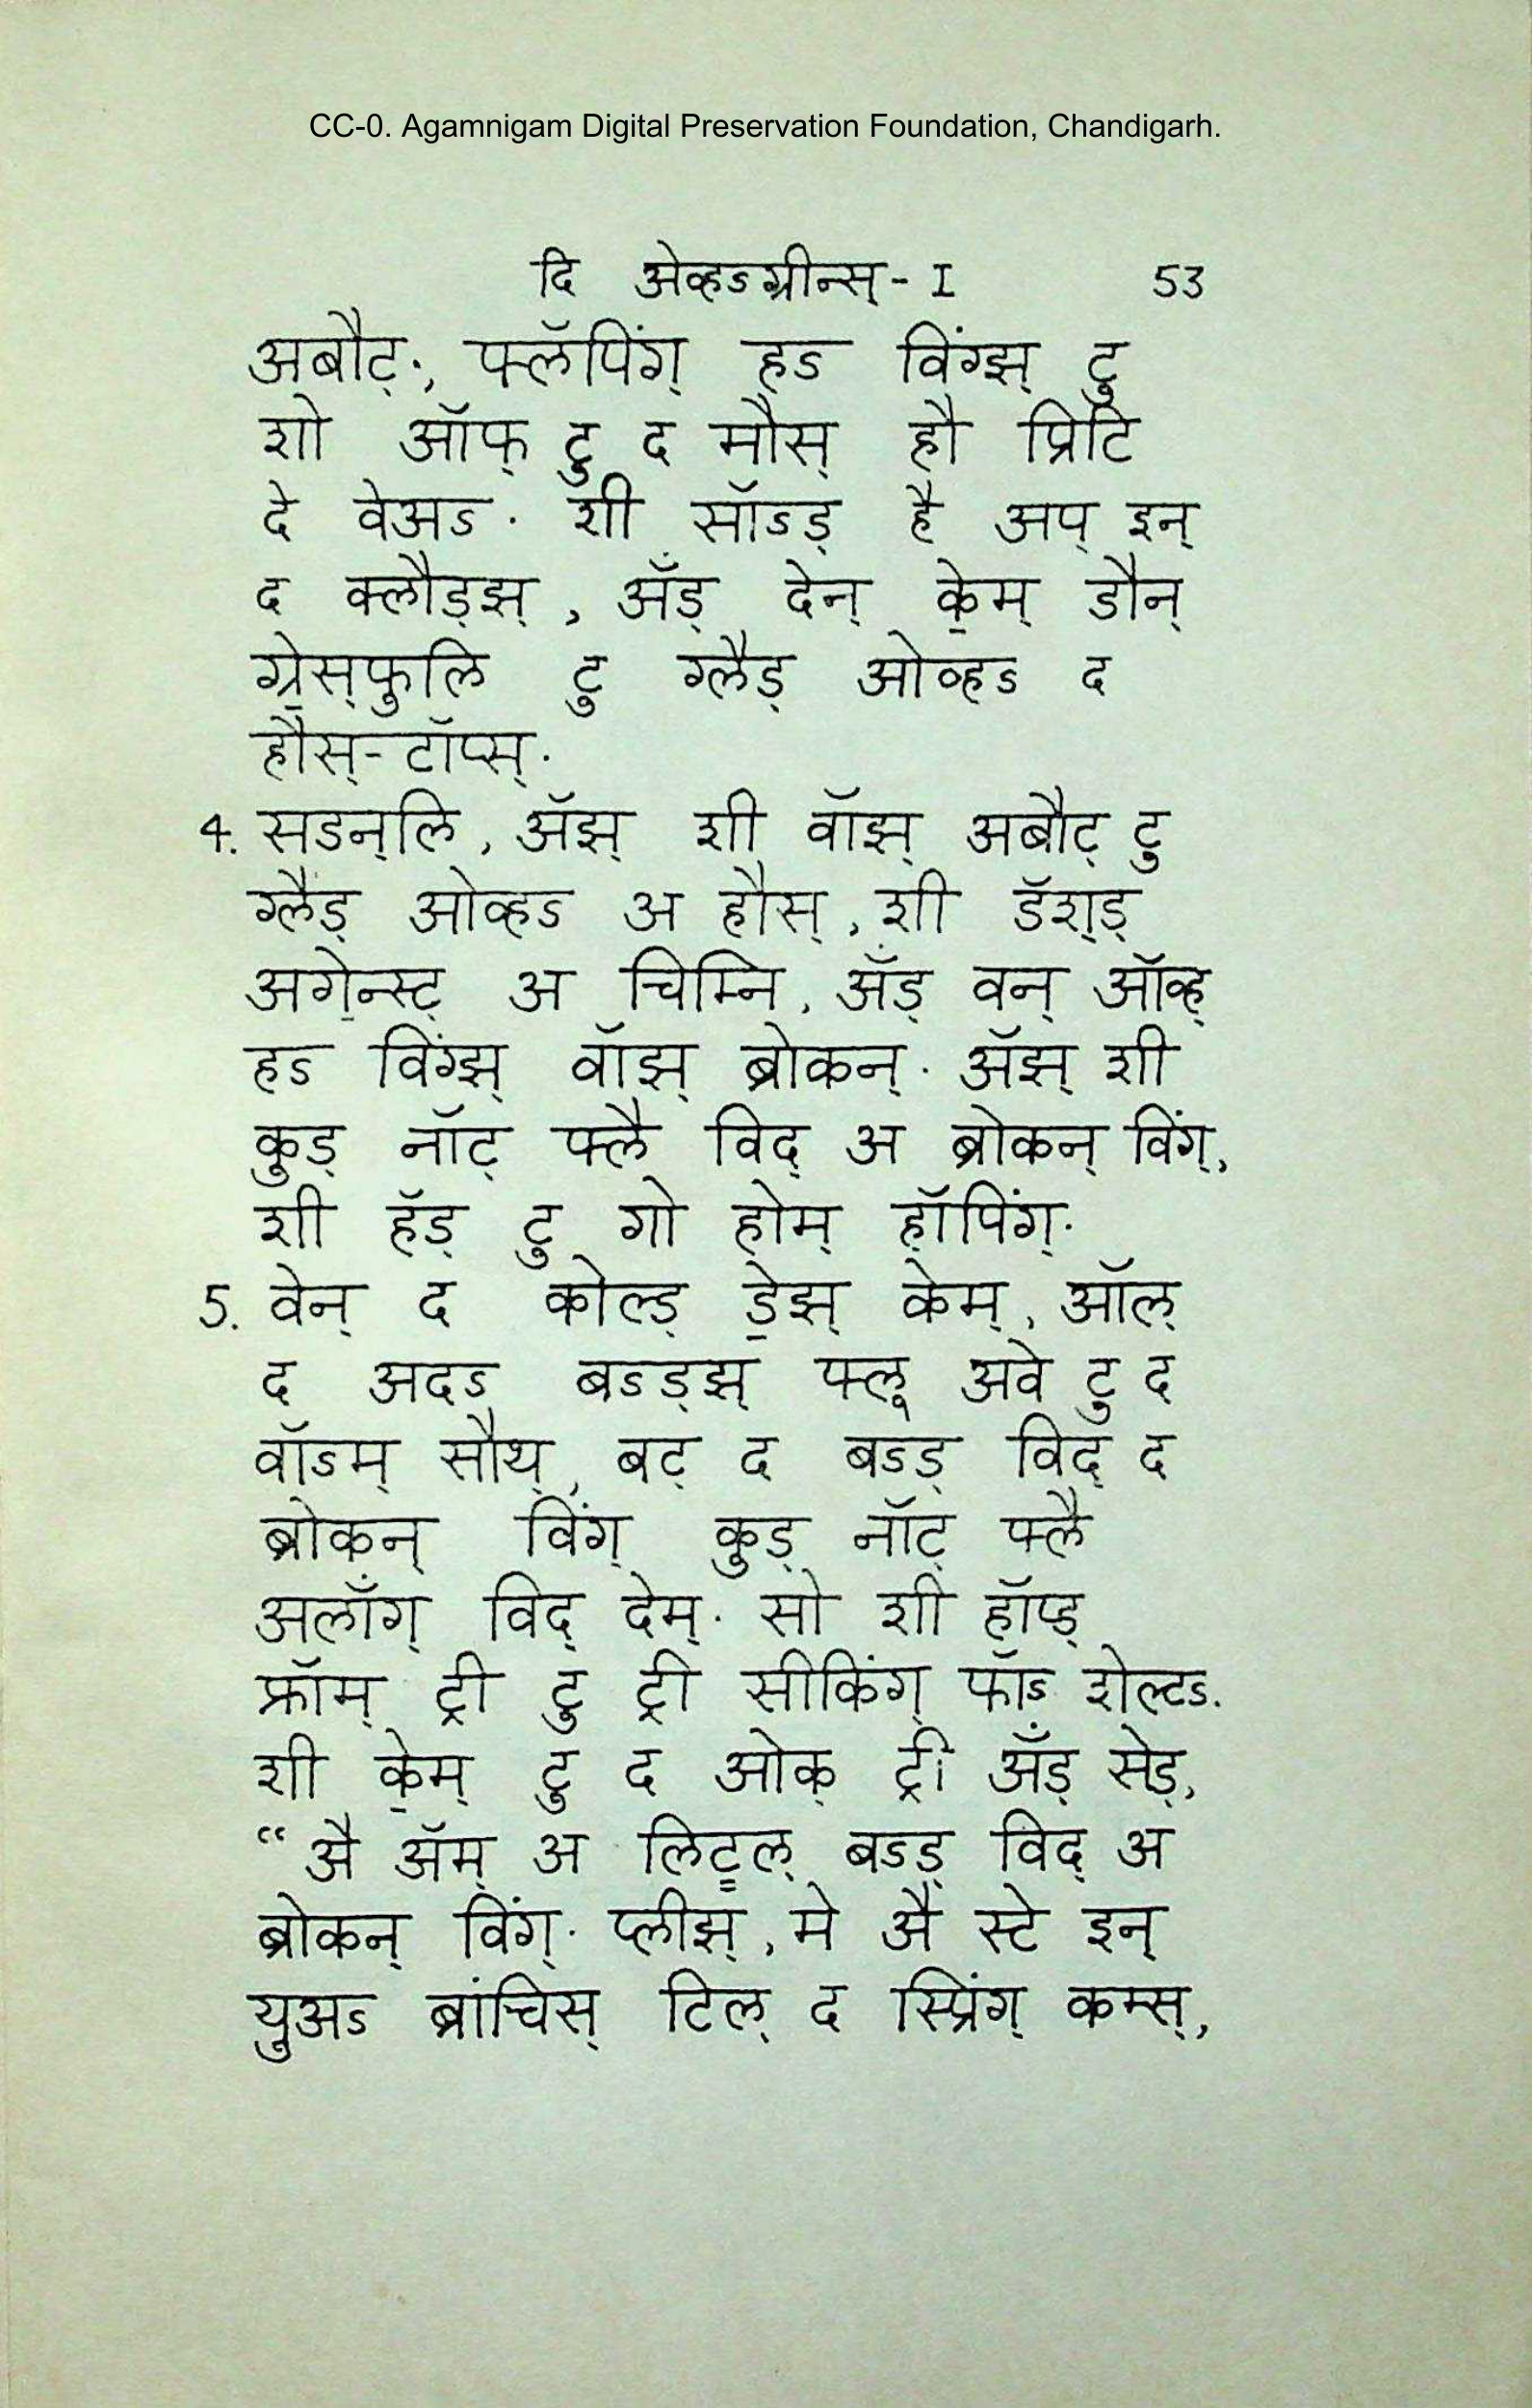 CC-0. Agamnigam Digital Preservation Foundation, Chandigarh.
दि अेव्हऽग्रीन्स्-I 53
अबौट्., फ्लॅपिंग् हऽ विंग्झ् टु
शो ऑफ् टु द मौस् हौ प्रिटि
दे वेअऽ. शी सॉऽड् है अप् इन्
द क्लौड्झ्, अँड् देन् के॒म् डौन्
ग्रे॒स्फुलि टु ग्लैड् ओव्हऽ द
हौस्-टॉप्स्.
4. सडन्लि, ॲझ् शी वॉझ् अबौट् टु
ग्लैड् ओव्हऽ अ हौस्, शी डॅश्ड्
अगे॒न्स्ट् अ चिम्नि, अँड् वन् ऑव्ह्
हऽ विंग्झ् वॉझ् ब्रोकन्. ॲझ् शी
कुड् नॉट् फ्लै विद् अ ब्रोकन् विंग्,
शी हॅड् टु गो होम् हॉपिंग्.
5. वेन् द कोल्ड् डे॒झ् केम्, ऑल्
द अदऽ बऽड्झ् फ्लू अवे टु द
वॉऽम् सौथ्, बट् द बऽड् विद् द
ब्रोकन् विंग् कुड् नॉट् फ्लै
अलाँग् विद् देम्. सो शी हॉप्ड्
फ्रॉम् ट्री टु ट्री सीकिंग् फॉऽ शेल्टऽ.
शी के॒म् टु द ओक् ट्री अँड् सेड्,
“अै ॲम् अ लिट्ल् बऽड् विद् अ
ब्रोकन् विंग्. प्लीझ्, मे अै स्टे इन्
युअऽ ब्रांचिस् टिल् द स्प्रिंग् कम्स्,